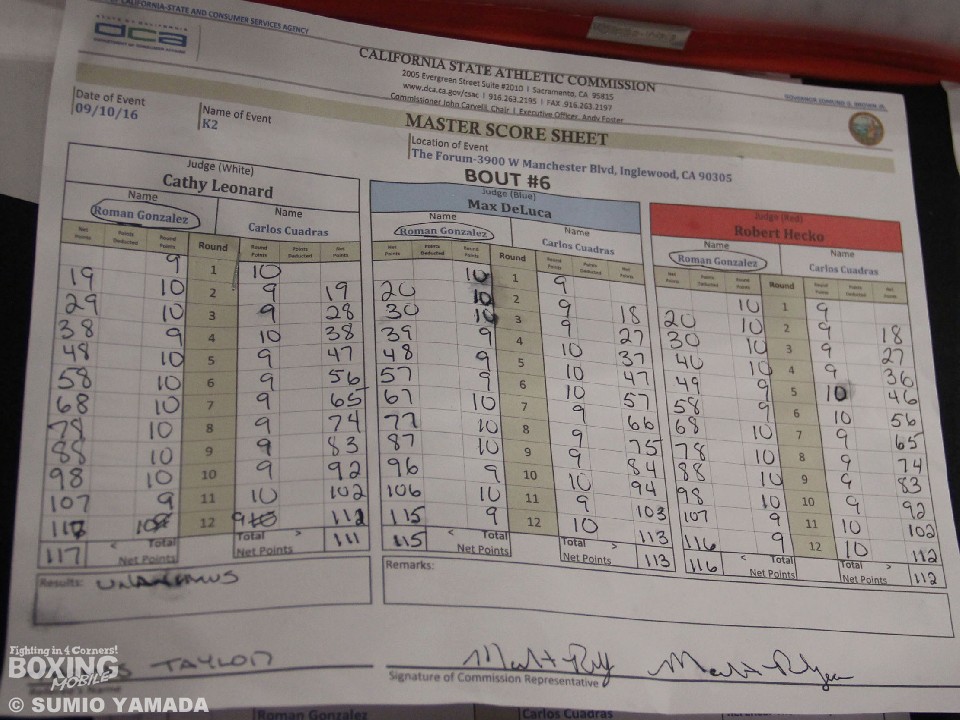 OF CALIFORNIA-STATE AND CONSUMER SERVICES AGENCY
STATE OF CALIFORNIA
dca
DEPARTMENT OF CONSUMER AFFAIRS
GOVERNOR EDMUND G. BROWN JR.
CALIFORNIA STATE ATHLETIC COMMISSION
2005 Evergreen Street Suite #2010 | Sacramento, CA 95815
www.dca.ca.gov/csac | 916.263.2195 | FAX 916.263.2197
Commissioner John Carvelli, Chair | Executive Officer, Andy Foster
MASTER SCORE SHEET
Date of Event
09/10/16
Name of Event
K2
Location of Event
The Forum-3900 W Manchester Blvd, Inglewood, CA 90305
BOUT #6
Judge (White) Judge (Blue) Judge (Red)
Cathy Leonard Max DeLuca Robert Hecko
Name Name Name Name Name Name
Roman Gonzalez Carlos Cuadras Roman Gonzalez Carlos Cuadras Roman Gonzalez Carlos Cuadras
Net Points Points Deducted Round Points Round Round Points Points Deducted Net Points Net Points Points Deducted Round Points Round Round Points Points Deducted Net Points Net Points Points Deducted Round Points Round Round Points Points Deducted Net Points
9 1 10 10 1 9 10 1 9
19 10 2 9 19 20 10 2 9 18 20 10 2 9 18
29 10 3 9 28 30 10 3 9 27 30 10 3 9 27
38 9 4 10 38 39 9 4 10 37 40 10 4 9 36
48 10 5 9 47 48 9 5 10 47 49 9 5 10 46
58 10 6 9 56 57 9 6 10 57 58 9 6 10 56
68 10 7 9 65 67 10 7 9 66 68 10 7 9 65
78 10 8 9 74 77 10 8 9 75 78 10 8 9 74
88 10 9 9 83 87 10 9 9 84 88 10 9 9 83
98 10 10 9 92 96 9 10 10 94 98 10 10 9 92
107 9 11 10 102 106 10 11 9 103 107 9 11 10 102
117 10 12 9 112 115 9 12 10 113 116 9 12 10 112
117 < Total Net Points Total > Net Points 111 115 < Total Net Points Total > Net Points 113 116 < Total Net Points Total > Net Points 112
Results: UNANIMOUS
Remarks:
TAYLOR
Signature of Commission Representative
Name
Roman Gonzalez Carlos Cuadras
Fighting in 4 Corners!
BOXING
MOBILE
© SUMIO YAMADA